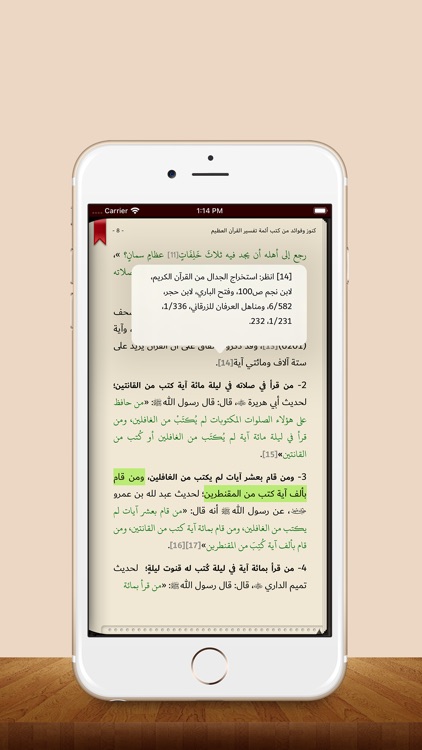 Carrier 1:14 PM
كنوز وفوائد من كتب أئمة تفسير القرآن العظيم - 8 -
رجع إلى أهله أن يجد فيه ثلاثَ خَلِفَاتٍ[11] عظامٍ سمانٍ؟ »،
صلاته
[14] انظر: استخراج الجدال من القرآن الكريم،
لابن نجم ص100، وفتح الباري، لابن حجر،
6/582، ومناهل العرفان للزرقاني، 1/336،
1/231، 232.
وآية
ستة آلاف ومائتي آية[14].
2- من قرأ في صلاته في ليلة مائة آية كتب من القانتين؛
لحديث أبي هريرة ﵁، قال: قال رسول الله ﷺ: «من حافظ
على هؤلاء الصلوات المكتوبات لم يُكتَبْ من الغافلين، ومن
قرأ في ليلة مائة آية لم يُكتَب من الغافلين أو كُتب من
القانتين»[15].
3- ومن قام بعشر آيات لم يكتب من الغافلين، ومن قام
بألف آية كتب من المقنطرين؛ لحديث عبد لله بن عمرو
، عن رسول الله ﷺ أنه قال: «من قام بعشر آيات لم
يكتب من الغافلين، ومن قام بمائة آية كتب من القانتين، ومن
قام بألف آية كُتِبَ من المقنطرين»[17][16].
4- من قرأ بمائة آية في ليلة كُتب له قنوت ليلةٍ؛ لحديث
تميم الداري ﵁، قال: قال رسول الله ﷺ: «من قرأ بمائة